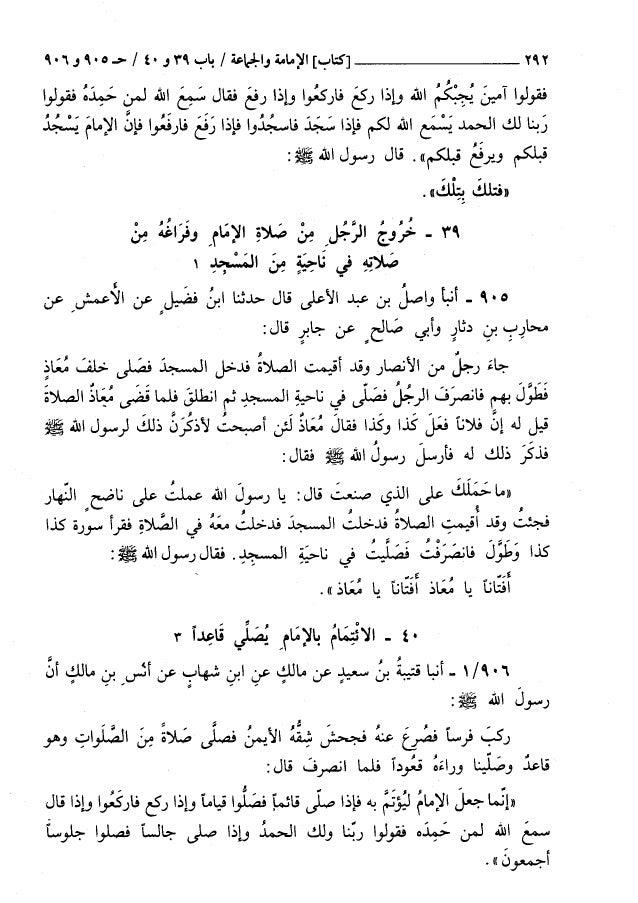 ٢٩٢ ــــــــــــــــــــ [كتاب] الإمامة والجماعة / باب ٣٩ و ٤٠ / حـ ٩٠٥ و ٩٠٦
فقولوا آمينَ يُجِبْكُمُ الله وإذا ركعَ فاركعُوا وإذا رفعَ فقال سَمِعَ الله لمن حَمِدَهُ فقولوا
رَبنا لك الحمد يَسْمَع الله لكم فإذا سَجَدَ فاسجُدُوا فإذا رَفَعَ فارفَعُوا فإنَّ الإمامَ يَسْجُدُ
قبلكم ويرفَعُ قبلكم». قال رسول الله ﷺ:
«فتلكَ بِتِلْكَ».
٣٩ ـ خُرُوجُ الرَّجُلِ مِنْ صَلاةِ الإمَامِ وفَرَاغُهُ مِنْ
صَلاتِهِ في نَاحِيَةٍ مِنَ المَسْجِدِ ١
٩٠٥ ـ أنبأ واصلُ بن عبد الأعلى قال حدثنا ابنُ فضَيلٍ عن الأعمشِ عن
محاربِ بنِ دثارٍ وأبي صَالحٍ عن جابرٍ قال:
جاءَ رجلٌ من الأنصار وقد أقيمت الصلاةُ فدخل المسجدَ فصَلى خلفَ مُعَاذٍ
فَطَوَّلَ بهم فانصرَفَ الرجُلُ فصَلّى في ناحيةِ المسجدِ ثم انطلقَ فلما قَضَى مُعَاذٌ الصلاةَ
قيل له إنَّ فلاناً فعَلَ كَذا وكَذا فقالَ مُعَاذٌ لَئن أصبحتُ لأذكُرَنَّ ذلك لرسولِ الله ﷺ
فذكَرَ ذلك له فأرسلَ رسولُ الله ﷺ فقال:
«ما حَمَلَكَ على الذي صنعتَ قال: يا رسولَ الله عملتُ على ناضحٍ النّهار
فجئتُ وقد أُقيمتِ الصلاةُ فدخلتُ المسجدَ فدخلتُ معَهُ في الصَّلاةِ فقرأ سورة كذا
كذا وَطَوَّلَ فانصَرَفْتُ فَصَلَّيتُ في ناحيَةِ المسجدِ. فقال رسول الله ﷺ:
أَفَتَّاناً يا مُعَاذ أَفَتَّاناً يا مُعَاذ».
٤٠ ـ الائْتِمَامُ بالإمَامِ يُصَلِّي قَاعِداً ٣
١/٩٠٦ ـ أنبا قتيبةُ بنُ سعيدٍ عن مالكٍ عنِ ابنِ شهابٍ عن أنَسِ بنِ مالكٍ أنَّ
رسولَ الله ﷺ:
ركبَ فرساً فصُرِعَ عنه فجحشَ شِقُّهُ الأيمنُ فصلَّى صلاةً مِنَ الصَّلَواتِ وهو
قاعدٌ وصَلّينا وراءَهُ قعُوداً فلما انصرفَ قال:
«إنّما جعلَ الإمامُ ليُؤتَمَّ به فإذا صلّى قائماً فصَلُّوا قياماً وإذا ركع فاركَعُوا وإذا قال
سمعَ الله لمن حَمِدَه فقولوا ربّنا ولك الحمدُ وإذا صلى جالساً فصلوا جلوساً
أجمعونَ».